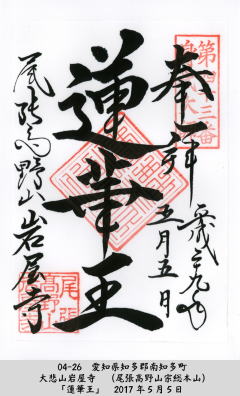 奉拝
平成二十九年
五月五日
第四十三番
蓮華王
尾張高野山岩屋寺
04-26 愛知県知多郡南知多町
大悲山岩屋寺 (尾張高野山宗総本山)
「蓮華王」 2017年5月5日